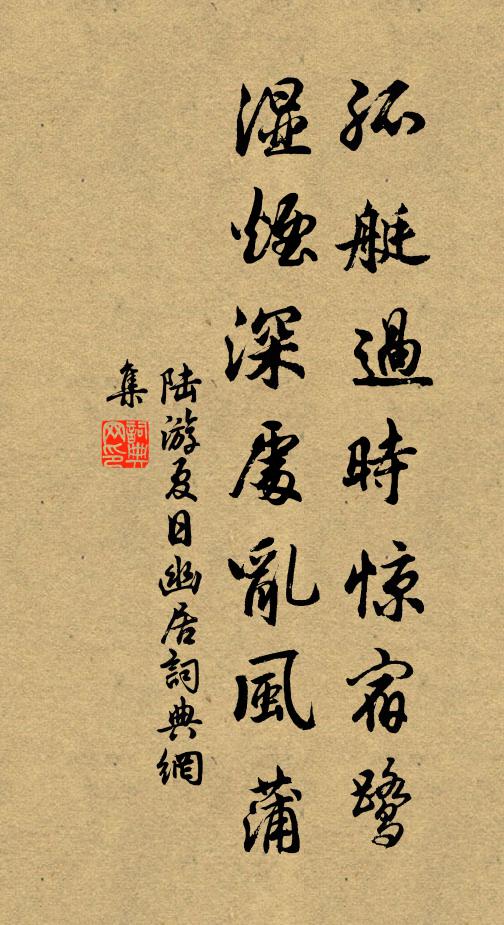 孤艇過時惊宿鷺
湿煙深處亂風蒲
陆游夏日幽居詞典網
集
詞典
网印